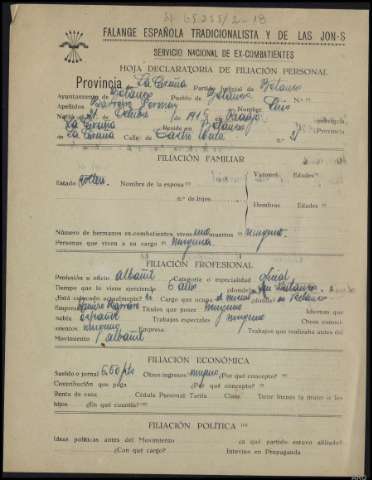 FALANGE ESPAÑOLA TRADICIONALISTA Y DE LAS JON-S
SERVICIO NACIONAL DE EX-COMBATIENTES
HOJA DECLARATORIA DE FILIACIÓN PERSONAL
Provincia de La Coruña Partido judicial de Betanzos
Ayuntamiento de Betanzos Pueblo de Betanzos N.º
Apellidos Nombre Luis
Nació el 21 de de 1915 en provincia
La Coruña Reside en Betanzos Provincia
La Coruña Calle de n.º 21
FILIACIÓN FAMILIAR
Varones Edades
Estado soltero Nombre de la esposa
n.º de hijos
Hembras Edades
Número de hermanos ex-combatientes vivos uno muertos ninguno
Personas que viven a su cargo ninguna
FILIACIÓN PROFESIONAL
Profesión u oficio albañil Categoría o especialidad oficial
Tiempo que la viene ejerciendo 6 años ¿dónde? en Betanzos
¿Está colocado actualmente? si Cargo que ocupa el mismo ¿dónde? en Betanzos
Empresa Ramón Títulos que posee ninguno Idiomas que
habla español Trabajos especiales ninguno Otros conoci-
mientos ninguno Empresa: Trabajos que realizaba antes del
Movimiento albañil
FILIACIÓN ECONÓMICA
Sueldo o jornal 6,50 pts Otros ingresos ninguno ¿Por qué concepto?
Contribución que paga ¿Por qué concepto?
Renta de casa Cédula Personal Tarifa Clase Tutor tienen la mujer o los
hijos ¿En qué cuantía?
FILIACIÓN POLÍTICA
Ideas políticas antes del Movimiento ¿a qué partido estuvo afiliado?
¿Con qué cargo? Intervino en Propaganda